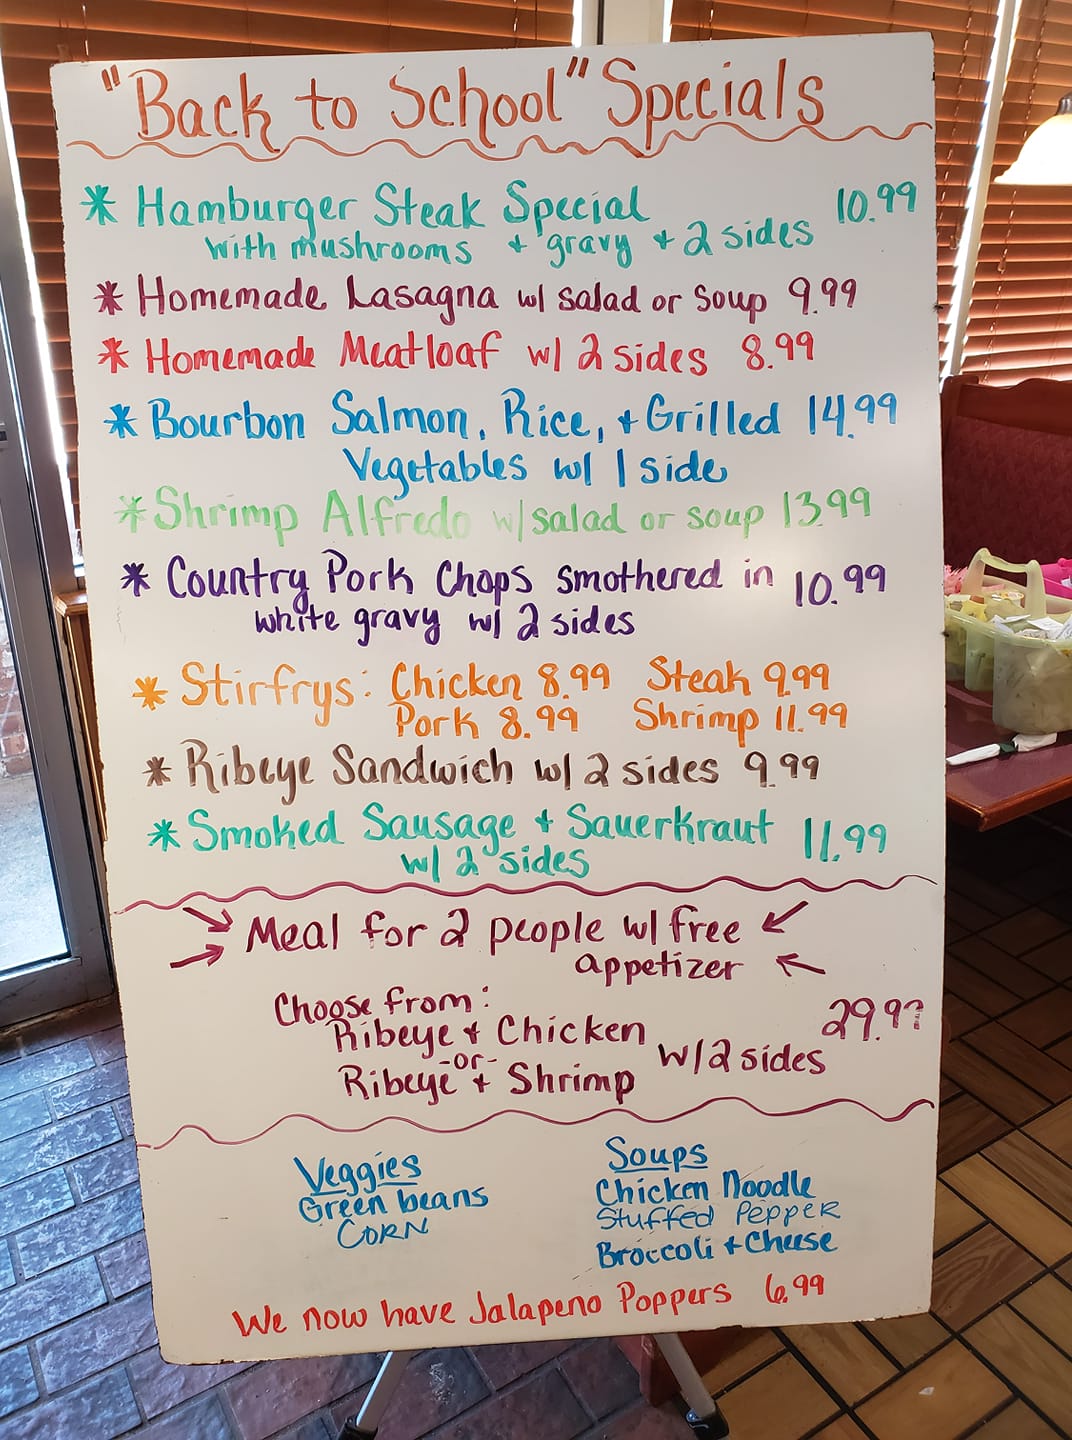 "Back to School" Specials
* Hamburger Steak Special 10.99
with mushrooms + gravy + 2 sides
* Homemade Lasagna w/ salad or soup 9.99
* Homemade Meatloaf w/ 2 sides 8.99
* Bourbon Salmon, Rice, + Grilled 14.99
Vegetables w/ 1 side
* Shrimp Alfredo w/ salad or soup 13.99
* Country Pork Chops smothered in 10.99
white gravy w/ 2 sides
* Stirfrys: Chicken 8.99 Steak 9.99
Pork 8.99 Shrimp 11.99
* Ribeye Sandwich w/ 2 sides 9.99
* Smoked Sausage + Sauerkraut 11.99
w/ 2 sides
Meal for 2 people w/ free
appetizer
Choose from:
Ribeye + Chicken
-or-
Ribeye + Shrimp
w/ 2 sides
29.99
Veggies
Green beans
CORN
Soups
Chicken Noodle
Stuffed Pepper
Broccoli + Cheese
We now have Jalapeno Poppers 6.99